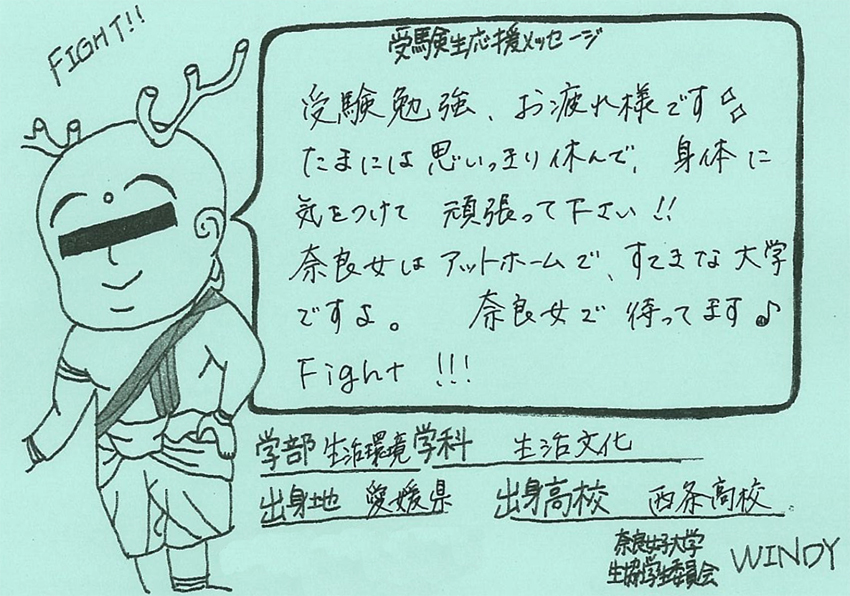 FIGHT!!
受験生応援メッセージ
受験勉強、お疲れ様です
たまには思いっきり休んで、身体に
気をつけて 頑張って下さい!!
奈良女はアットホームで、すてきな大学
ですよ。 奈良女で待ってます♪
Fight !!!
学部 生活環境 学科 生活文化
出身地 愛媛県 出身高校 西条高校
奈良女子大学
生協学生委員会 WINDY